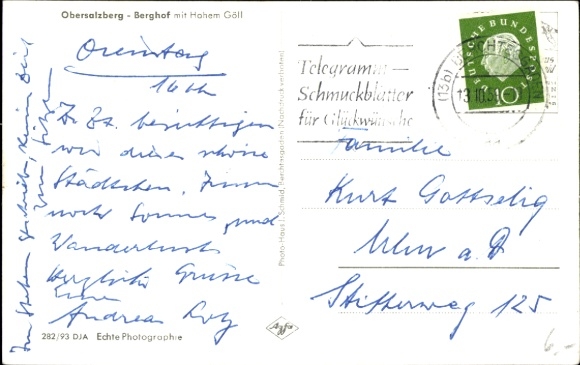 Obersalzberg - Berghof mit Hohem Göll
Dienstag
16 Uhr
Z. Zt. besichtigen
wir dieses schöne
Städtchen.
noch Sonne und
Wanderlust
Herzliche Grüsse
Eure
Andrea
Im Stehen geschrieben, keine Zeit
zum Sitzen
282/93 DJA Echte Photographie
Photo-Haus J. Schmid, Berchtesgaden (Nachdruck verboten)
Agfa
Telegramm-
Schmuckblätter
für Glückwünsche
(13b) BERCHTESGADEN
13.10.
DEUTSCHE BUNDESPOST
10
Familie
Kurt Gottselig
Ulm a. D
Stifterweg 125
6,-